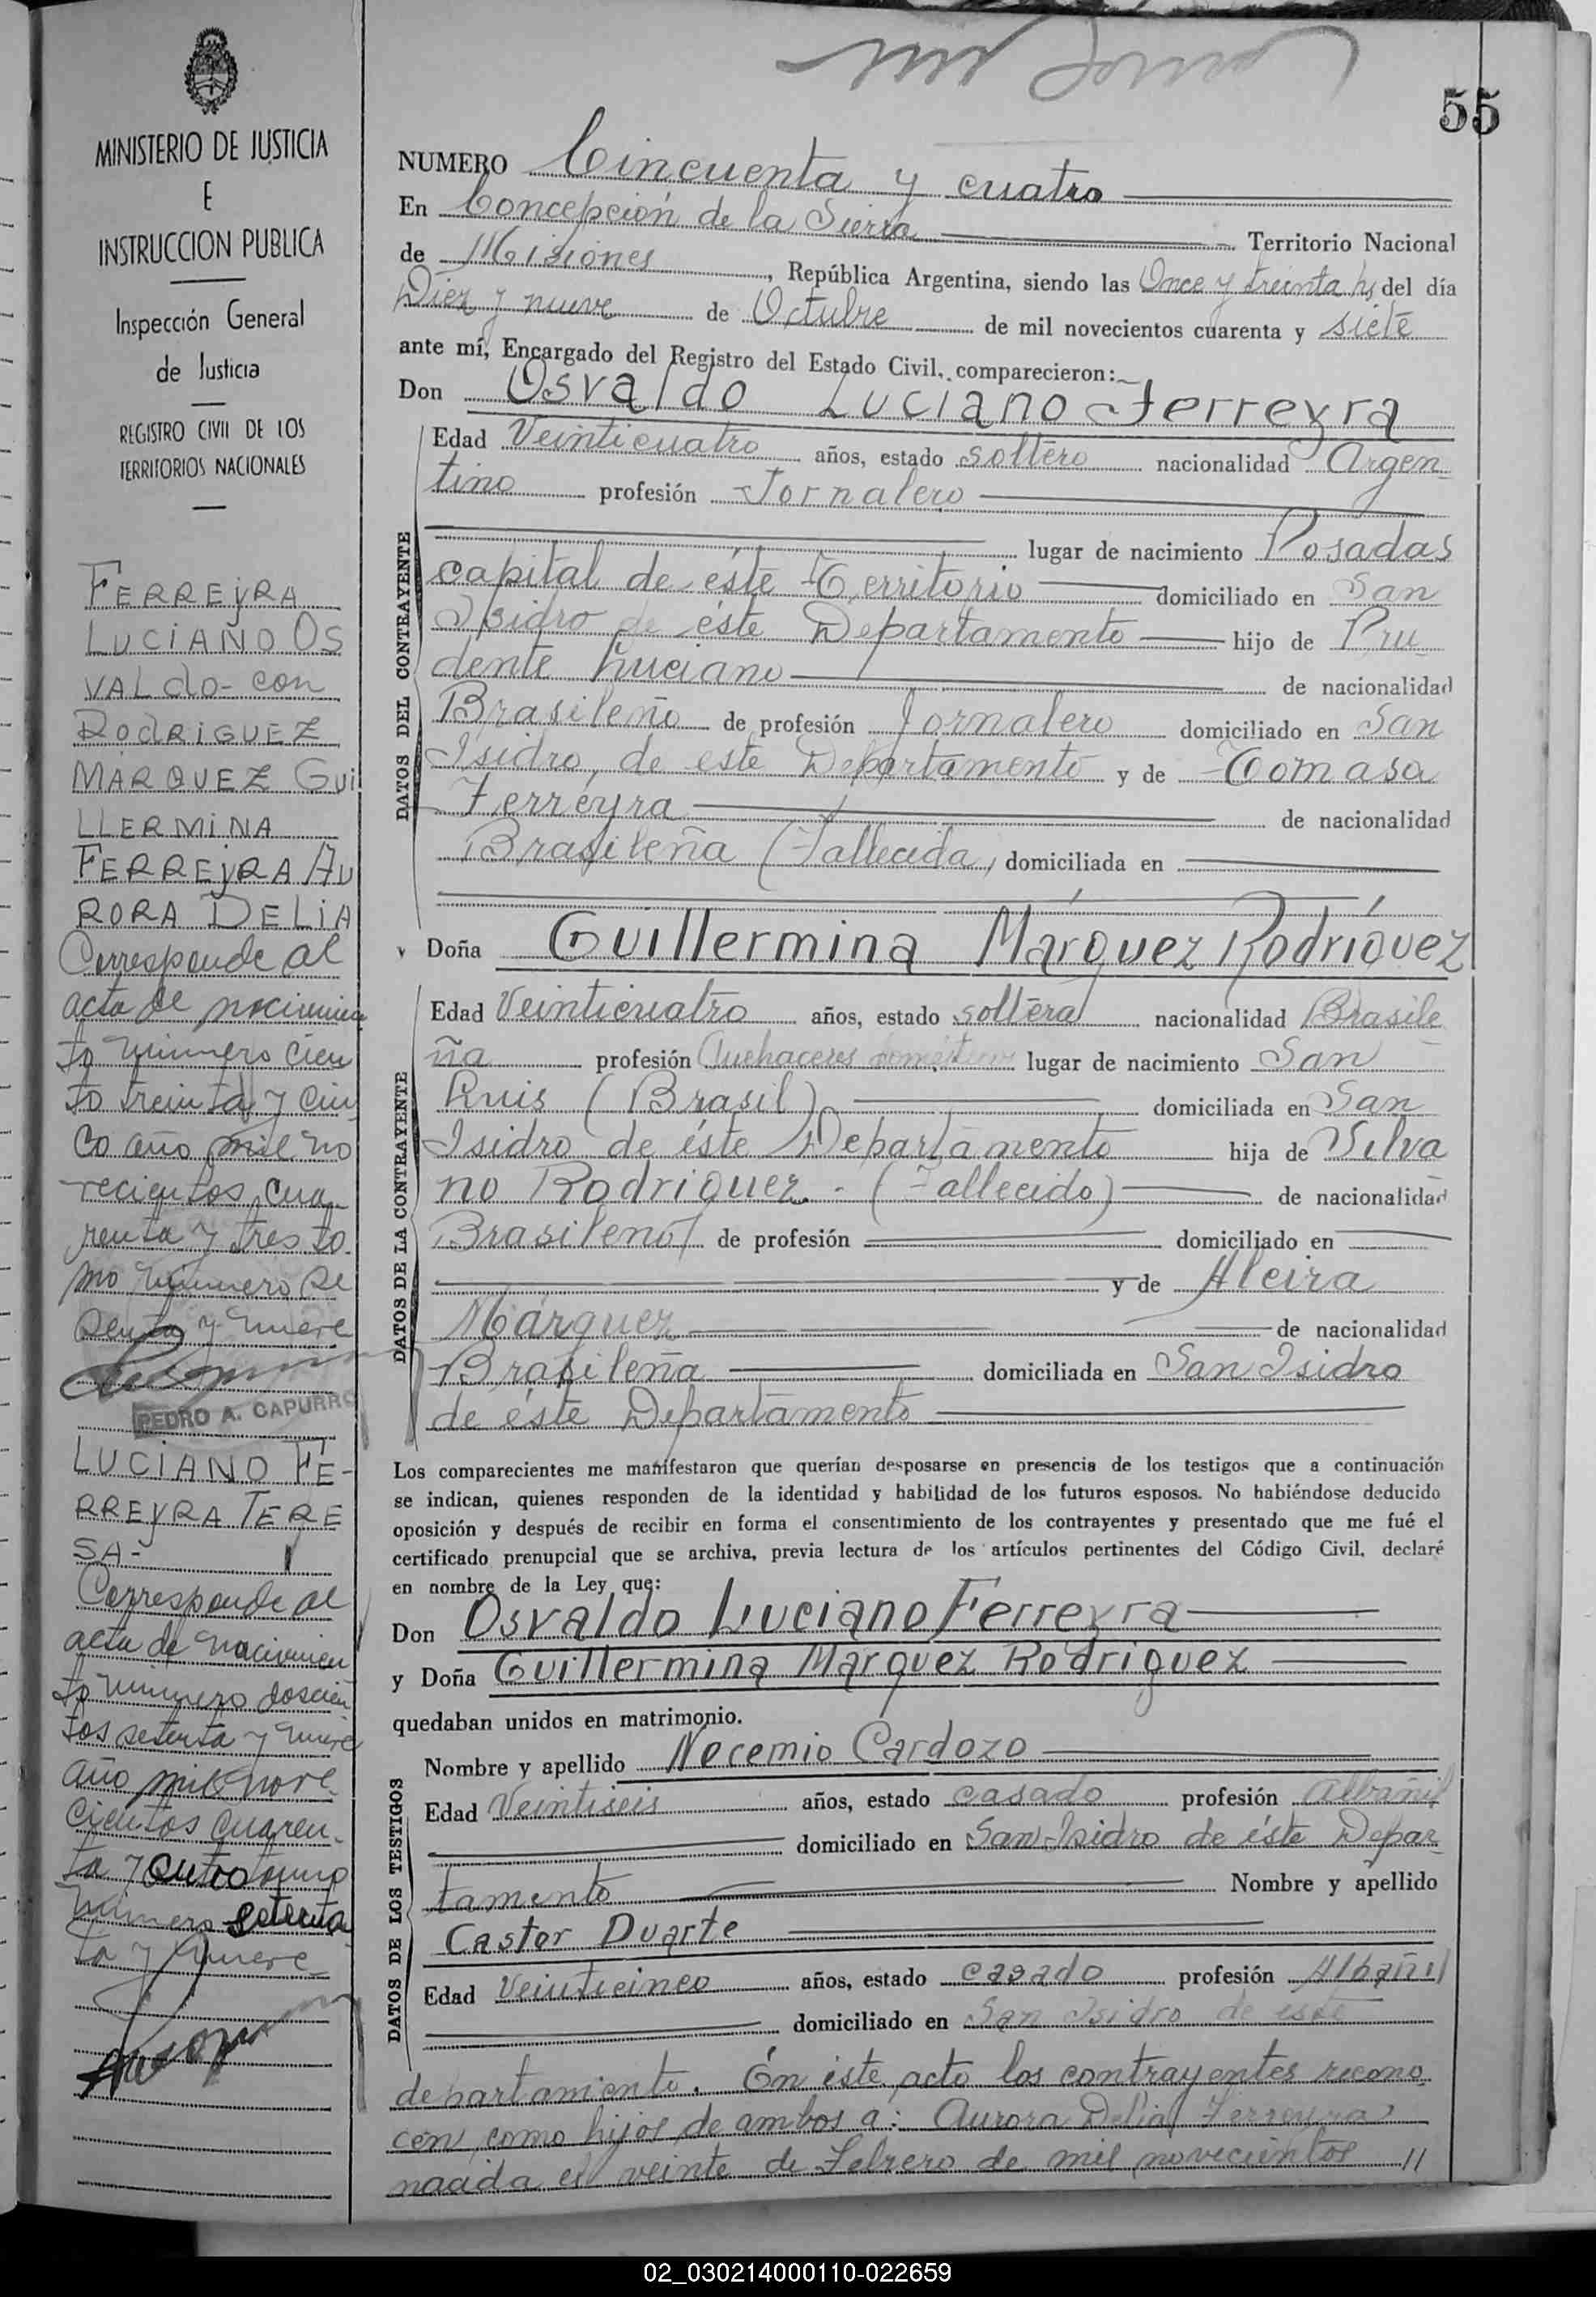 55
MINISTERIO DE JUSTICIA
E
INSTRUCCION PUBLICA
Inspección General
de Justicia
REGISTRO CIVIL DE LOS
TERRITORIOS NACIONALES
FERREyRA
LUCIANO OS
VALdO- con
ROdRIGUEZ
MARQUEZ GUi
LLERMINA
FERREyRA AU
RORA DELIA
Corresponde al
acta de nacimien
to número cien
to treinta y cin
co año mil no
vecientos cua
renta y tres to
mo número se
senta y nueve
PEDRO A. CAPURRO
LUCIANO FE-
RREyRA TERE
SA-
Corresponde al
acta de nacimien
to número doscien
tos setenta y nueve
año mil nove
cientos cuaren
ta y cuatro tomo
número setenta
ta y nueve
NUMERO Cincuenta y cuatro
En Concepción de la Sierra Territorio Nacional
de Misiones, República Argentina, siendo las Once y treinta hs del día
Diez y nueve de Octubre de mil novecientos cuarenta y siete
ante mí, Encargado del Registro del Estado Civil, comparecieron:
Don Osvaldo Luciano Ferreyra
DATOS DEL CONTRAYENTE
Edad Veinticuatro años, estado soltero nacionalidad Argen
tino profesión Jornalero
lugar de nacimiento Posadas
capital de éste Territorio domiciliado en San
Isidro de éste Departamento hijo de Pru
dente Luciano de nacionalidad
Brasileño de profesión Jornalero domiciliado en San
Isidro, de este Departamento y de Tomasa
Ferreyra de nacionalidad
Brasileña (Fallecida) domiciliada en
y Doña Guillermina Márquez Rodríguez
DATOS DE LA CONTRAYENTE
Edad Veinticuatro años, estado soltera nacionalidad Brasile
ña profesión Quehaceres domésticos lugar de nacimiento San
Luis (Brasil) domiciliada en San
Isidro de éste Departamento hija de Silva
no Rodriguez. - (Fallecido) de nacionalidad
Brasileño de profesión domiciliado en
y de Alcira
Márquez de nacionalidad
Brasileña domiciliada en San Isidro
de éste Departamento
Los comparecientes me manifestaron que querían desposarse en presencia de los testigos que a continuación
se indican, quienes responden de la identidad y habilidad de los futuros esposos. No habiéndose deducido
oposición y después de recibir en forma el consentimiento de los contrayentes y presentado que me fué el
certificado prenupcial que se archiva, previa lectura de los artículos pertinentes del Código Civil, declaré
en nombre de la Ley que:
Don Osvaldo Luciano Ferreyra
y Doña Guillermina Marquez Rodriguez
quedaban unidos en matrimonio.
DATOS DE LOS TESTIGOS
Nombre y apellido Necemio Cardozo
Edad Veintiseis años, estado casado profesión Albañil
domiciliado en San Isidro de éste Depar
tamento Nombre y apellido
Castor Duarte
Edad Veinticinco años, estado casado profesión Albañil
domiciliado en San Isidro de este
departamiento. En éste acto los contrayentes recono
cen, como hijos de ambos a: Aurora Delia Ferreyra
nacida el veinte de Febrero de mil novecientos //
02_030214000110-022659